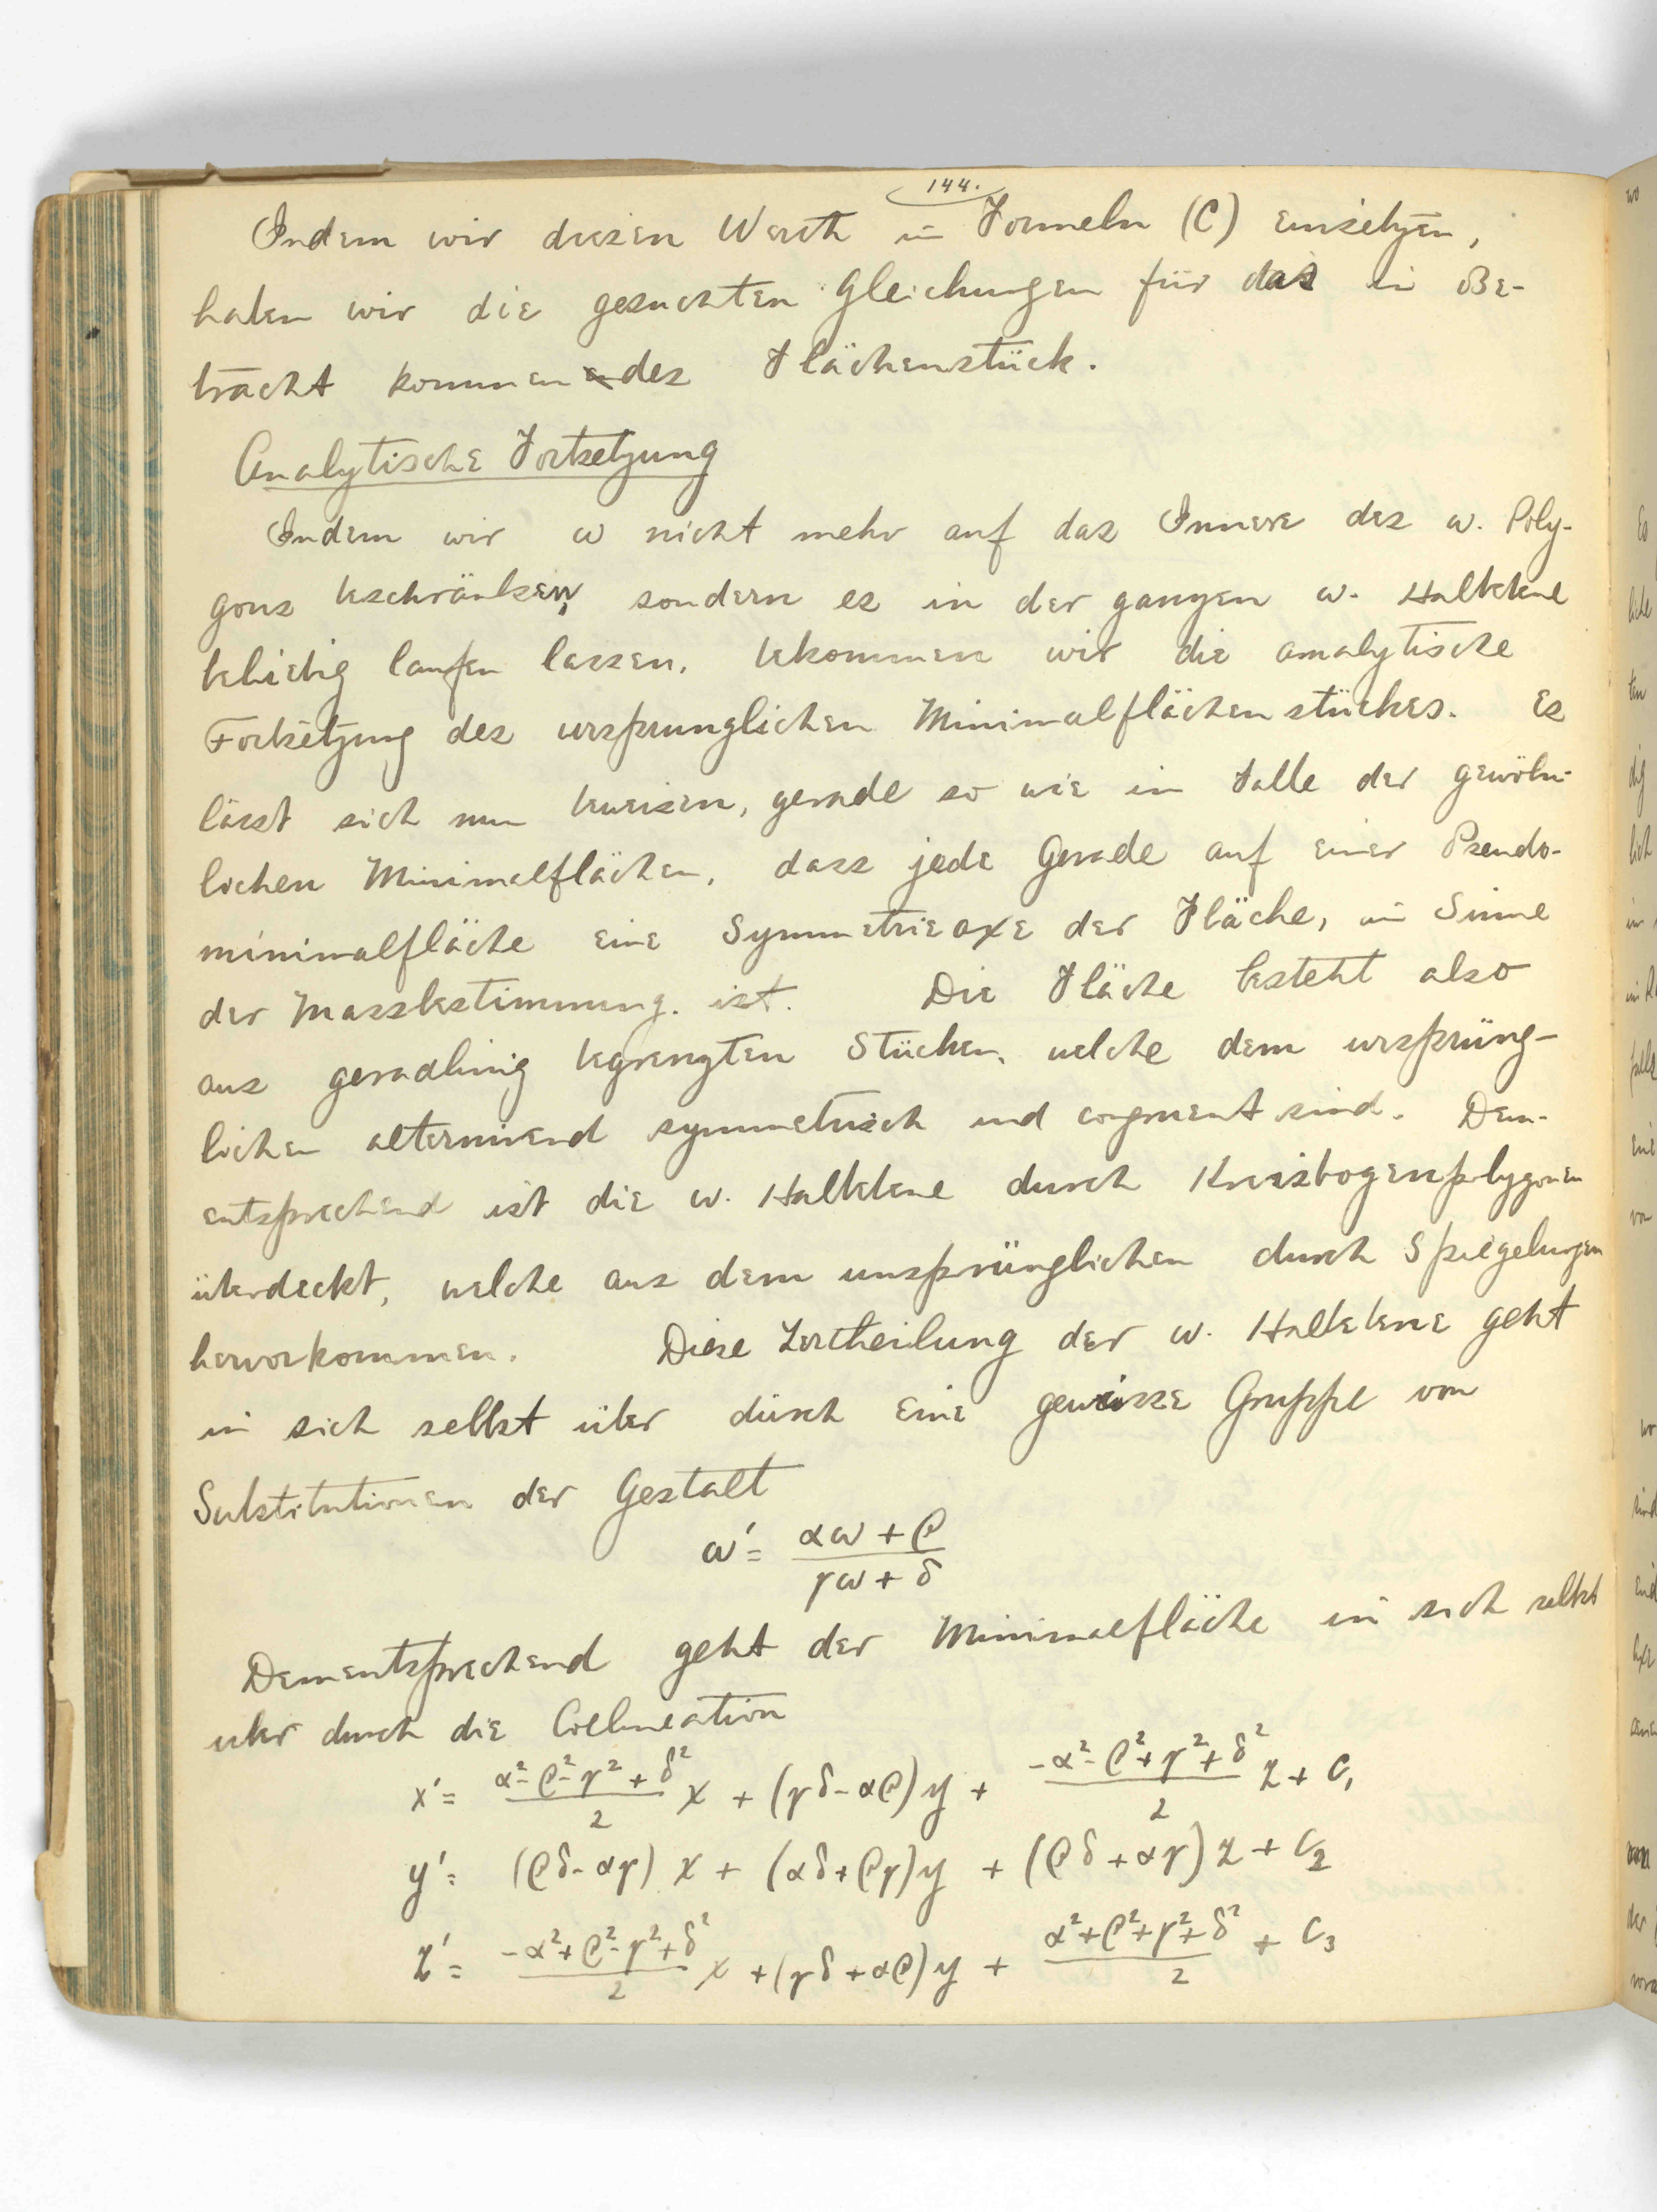 144.
Indem wir diesen Werth in Formeln (C) einsetzen,
haben wir die gesuchten Gleichungen für das in Be-
tracht kommendes Flächenstück.
Analytische Fortsetzung
Indem wir ω nicht mehr auf das Innere des ω. Poly-
gons beschränken, sondern es in der ganzen ω. Halbebene
beliebig laufen lassen, bekommen wir die analytische
Fortsetzung des ursprunglichen Minimalflächenstückes. Es
lässt sich nun beweisen, gerade so wie in Falle der gewöhn-
lichen Minimalflächen, dass jede Gerade auf einer Pseudo-
minimalfläche eine Symmetrieaxe der Fläche, im Sinne
der Massbestimmung. ist. Die Fläche besteht also
aus geradlinig begrenzten Stücken, welche dem ursprüng-
lichen alternirend symmetrisch und congruent sind. Dem-
entsprechend ist die ω. Halbebene durch Kreisbogenpolygonen
überdeckt, welche aus dem ursprünglichen durch Spiegelungen
hervorkommen. Diese Zertheilung der ω. Halbebene geht
in sich selbst über durch eine gewisse Gruppe von
Substitutionen der Gestalt
ω' = (αω + β)/(γω + δ)
Dementsprechend geht der Minimalfläche in sich selbst
uber durch die Collineation
x' = (α² - β² - γ² + δ²)/2 x + (γδ - αβ) y + (-α² - β² + γ² + δ²)/2 z + C₁
y' = (βδ - αγ) x + (αδ + βγ) y + (βδ + αγ) z + C₂
z' = (-α² + β² - γ² + δ²)/2 x + (γδ + αβ) y + (α² + β² + γ² + δ²)/2 + C₃